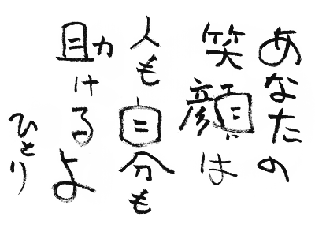 あなたの
笑顔は
人も自分も
助けるよ
ひとり